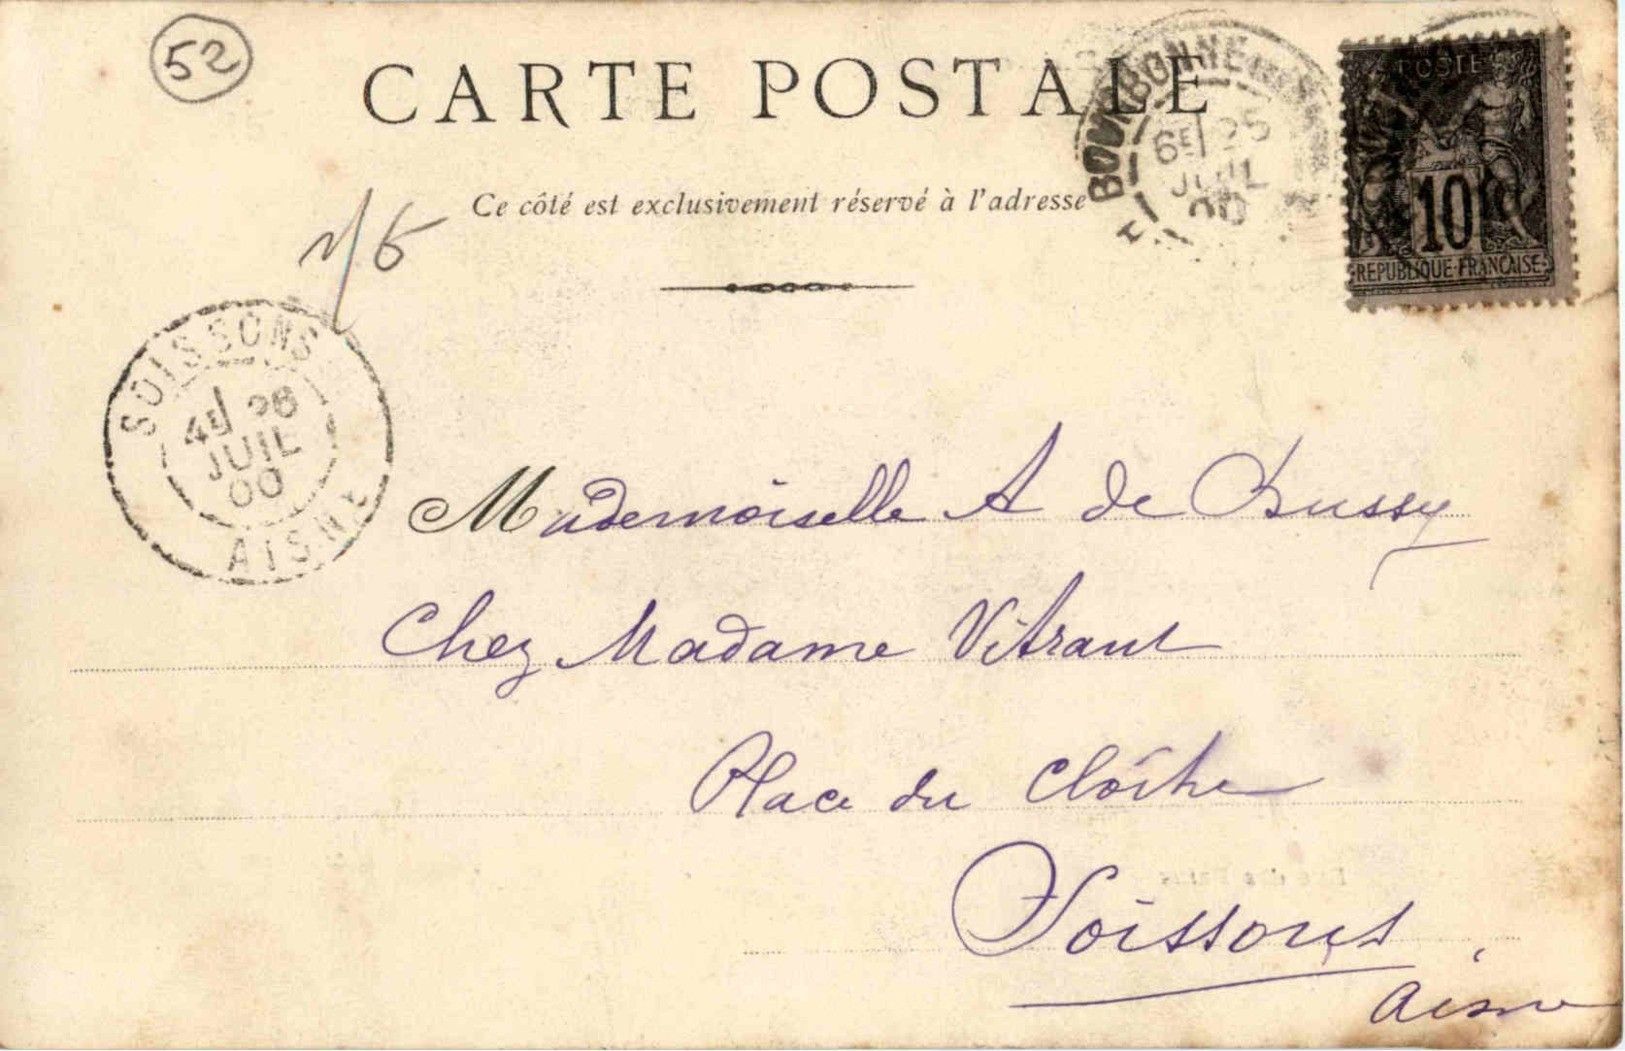 52
CARTE POSTALE
BOURBONNE
6E 25
JUIL
00
POSTES
10
REPUBLIQUE FRANCAISE
Ce côté est exclusivement réservé à l'adresse
SOISSONS
4E 26
JUIL
00
AISNE
Mademoiselle A de Bussy
Chez Madame Vitrant
Place du Cloître
Soissons
Aisne